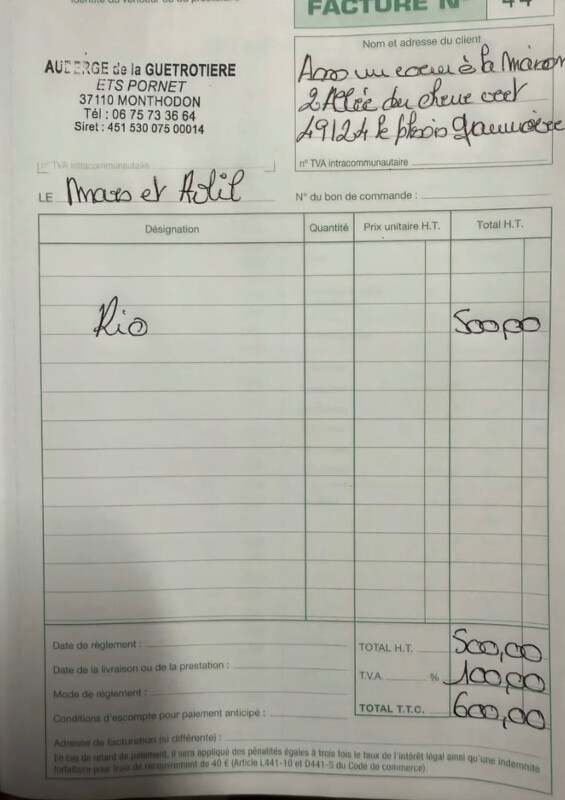 Identité du vendeur ou du prestataire
FACTURE N° 44
AUBERGE de la GUETROTIERE
ETS PORNET
37110 MONTHODON
Tél : 06 75 73 36 64
Siret : 451 530 075 00014
n° TVA intracommunautaire
Nom et adresse du client
Asso un coeur à la maison
2 Allée du chene vert
49124 le plessis grammoire
n° TVA intracommunautaire
LE Mars et Avril
N° du bon de commande :
Désignation Quantité Prix unitaire H.T. Total H.T.
Rio 500,00
Date de règlement :
Date de la livraison ou de la prestation :
Mode de règlement :
Conditions d'escompte pour paiement anticipé :
TOTAL H.T. 500,00
T.V.A. % 100,00
TOTAL T.T.C. 600,00
Adresse de facturation (si différente) :
En cas de retard de paiement, il sera appliqué des pénalités égales à trois fois le taux de l'intérêt légal ainsi qu'une indemnité
forfaitaire pour frais de recouvrement de 40 € (Article L441-10 et D441-5 du Code de commerce).